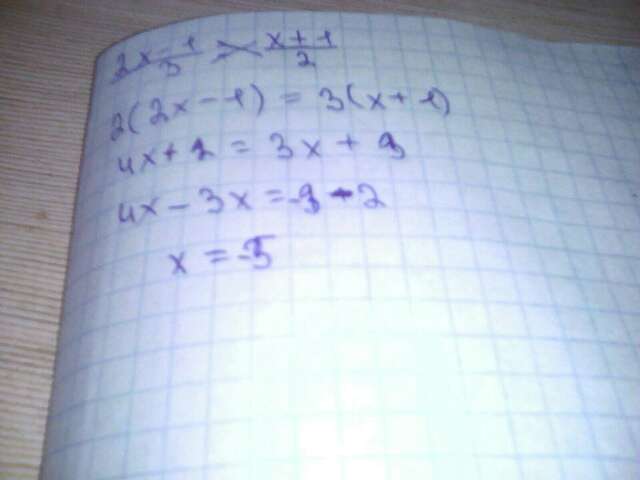 2x-1/3 = x+1/2
2(2x-1) = 3(x+1)
4x+2 = 3x+3
4x-3x=-3-2
x=-5